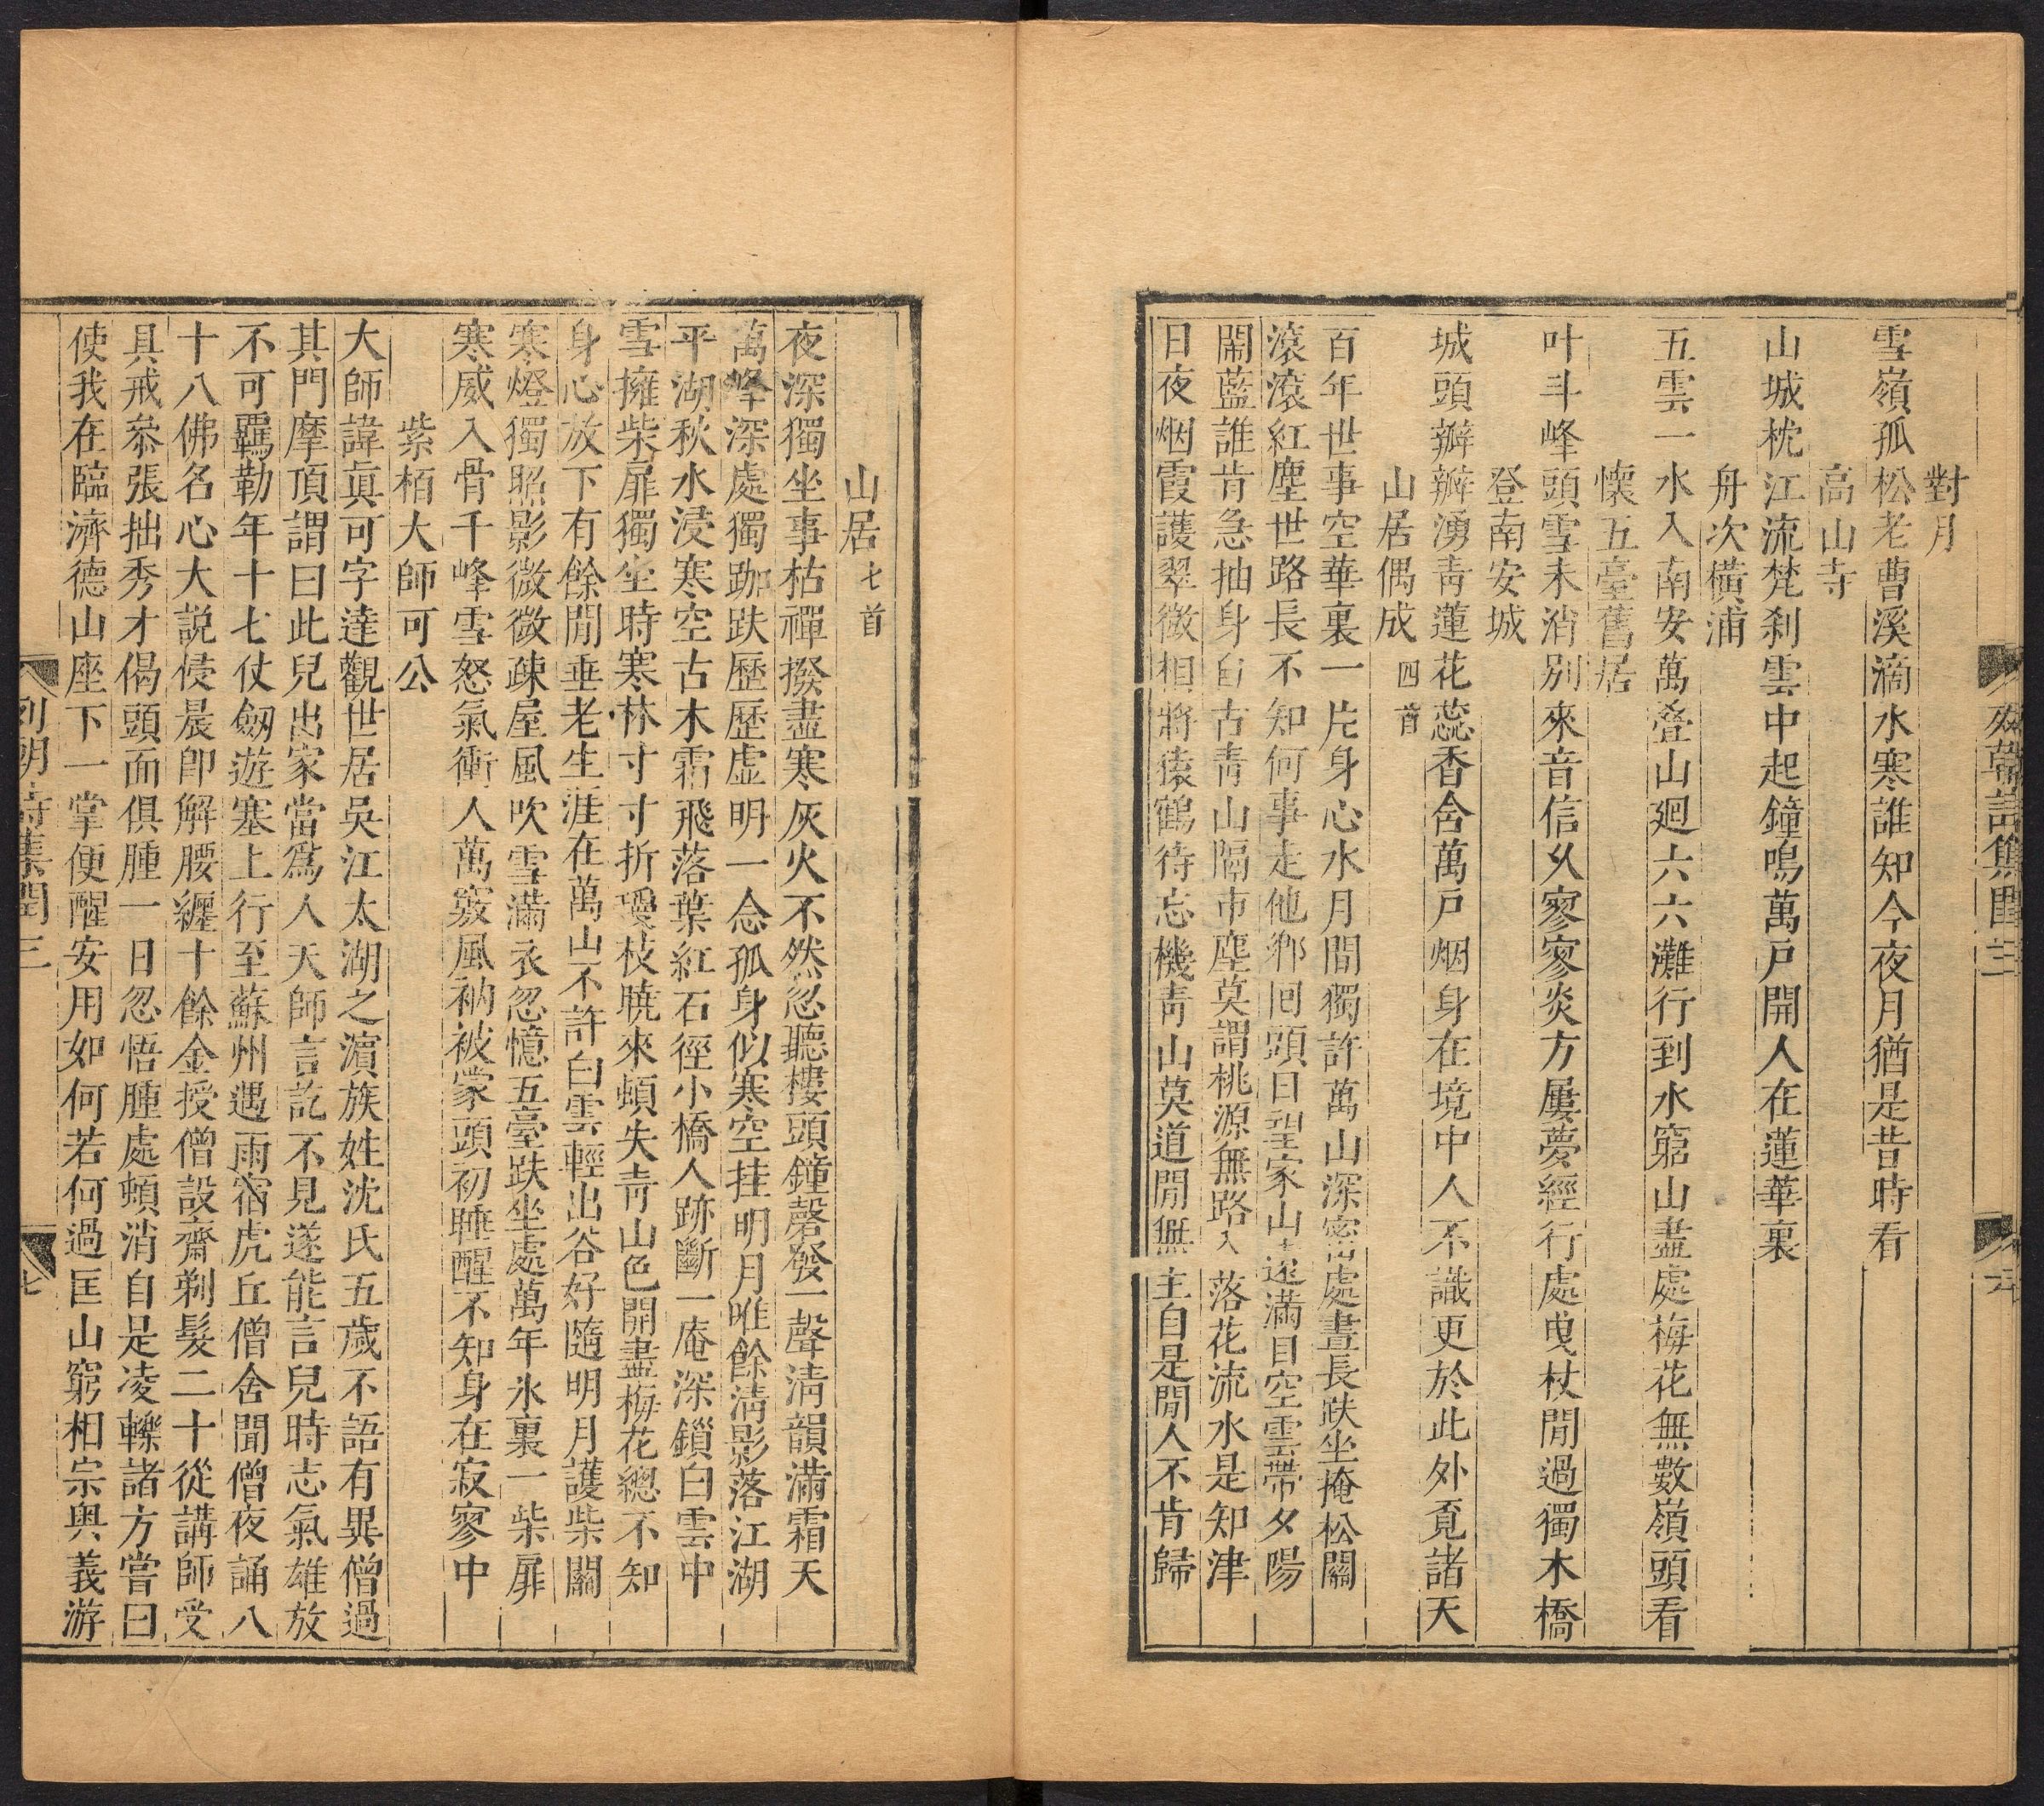 對月
雪嶺孤松老曹溪滴水寒誰知今夜月猶是昔時看
高山寺
山城枕江流梵刹雲中起鐘鳴萬戶開人在蓮華裏
舟次橫浦
五雲一水入南安萬叠山廻六六灘行到水窮山盡處梅花無數嶺頭看
懷五臺舊居
叶斗峰頭雪未消別來音信久寥寥炎方屢夢經行處曳杖閒過獨木橋
登南安城
城頭瓣瓣湧青蓮花蕊香含萬戶烟身在境中人不識更於此外覓諸天
山居偶成四首
百年世事空華裏一片身心水月間獨許萬山深密處晝長趺坐掩松關
滾滾紅塵世路長不知何事走他鄉回頭日望家山遠滿目空雲帶夕陽
鬧藍誰肯急抽身自古青山隔市塵莫謂桃源無路入落花流水是知津
日夜烟霞護翠微相將猿鶴待忘機青山莫道閒無主自是閒人不肯歸
山居七首
夜深獨坐事枯禪撥盡寒灰火不然忽聽樓頭鐘磬發一聲清韻滿霜天
萬峰深處獨跏趺歷歷虛明一念孤身似寒空挂明月唯餘清影落江湖
平湖秋水浸寒空古木霜飛落葉紅石徑小橋人跡斷一庵深鎖白雲中
雪擁柴扉獨坐時寒林寸寸折瓊枝曉來頓失青山色開盡梅花總不知
身心放下有餘閒垂老生涯在萬山不許白雲輕出谷好隨明月護柴關
寒燈獨照影微微疎屋風吹雪滿衣忽憶五臺趺坐處萬年氷裏一柴扉
寒威入骨千峰雪怒氣衝人萬竅風衲被蒙頭初睡醒不知身在寂寥中
紫栢大師可公
大師諱眞可字達觀世居吳江太湖之濵族姓沈氏五歲不語有異僧過
其門摩頂謂曰此兒出家當爲人天師言訖不見遂能言兒時志氣雄放
不可羈勒年十七仗劔遊塞上行至蘇州遇雨宿虎丘僧舍聞僧夜誦八
十八佛名心大説侵晨卽解腰纏十餘金授僧設齋剃髮二十從講師受
具戒叅張拙秀才偈頭面俱腫一日忽悟腫處頓消自是凌轢諸方嘗曰
使我在臨濟德山座下一掌便醒安用如何若何過匡山窮相宗奧義游
列朝詩集閏三
七